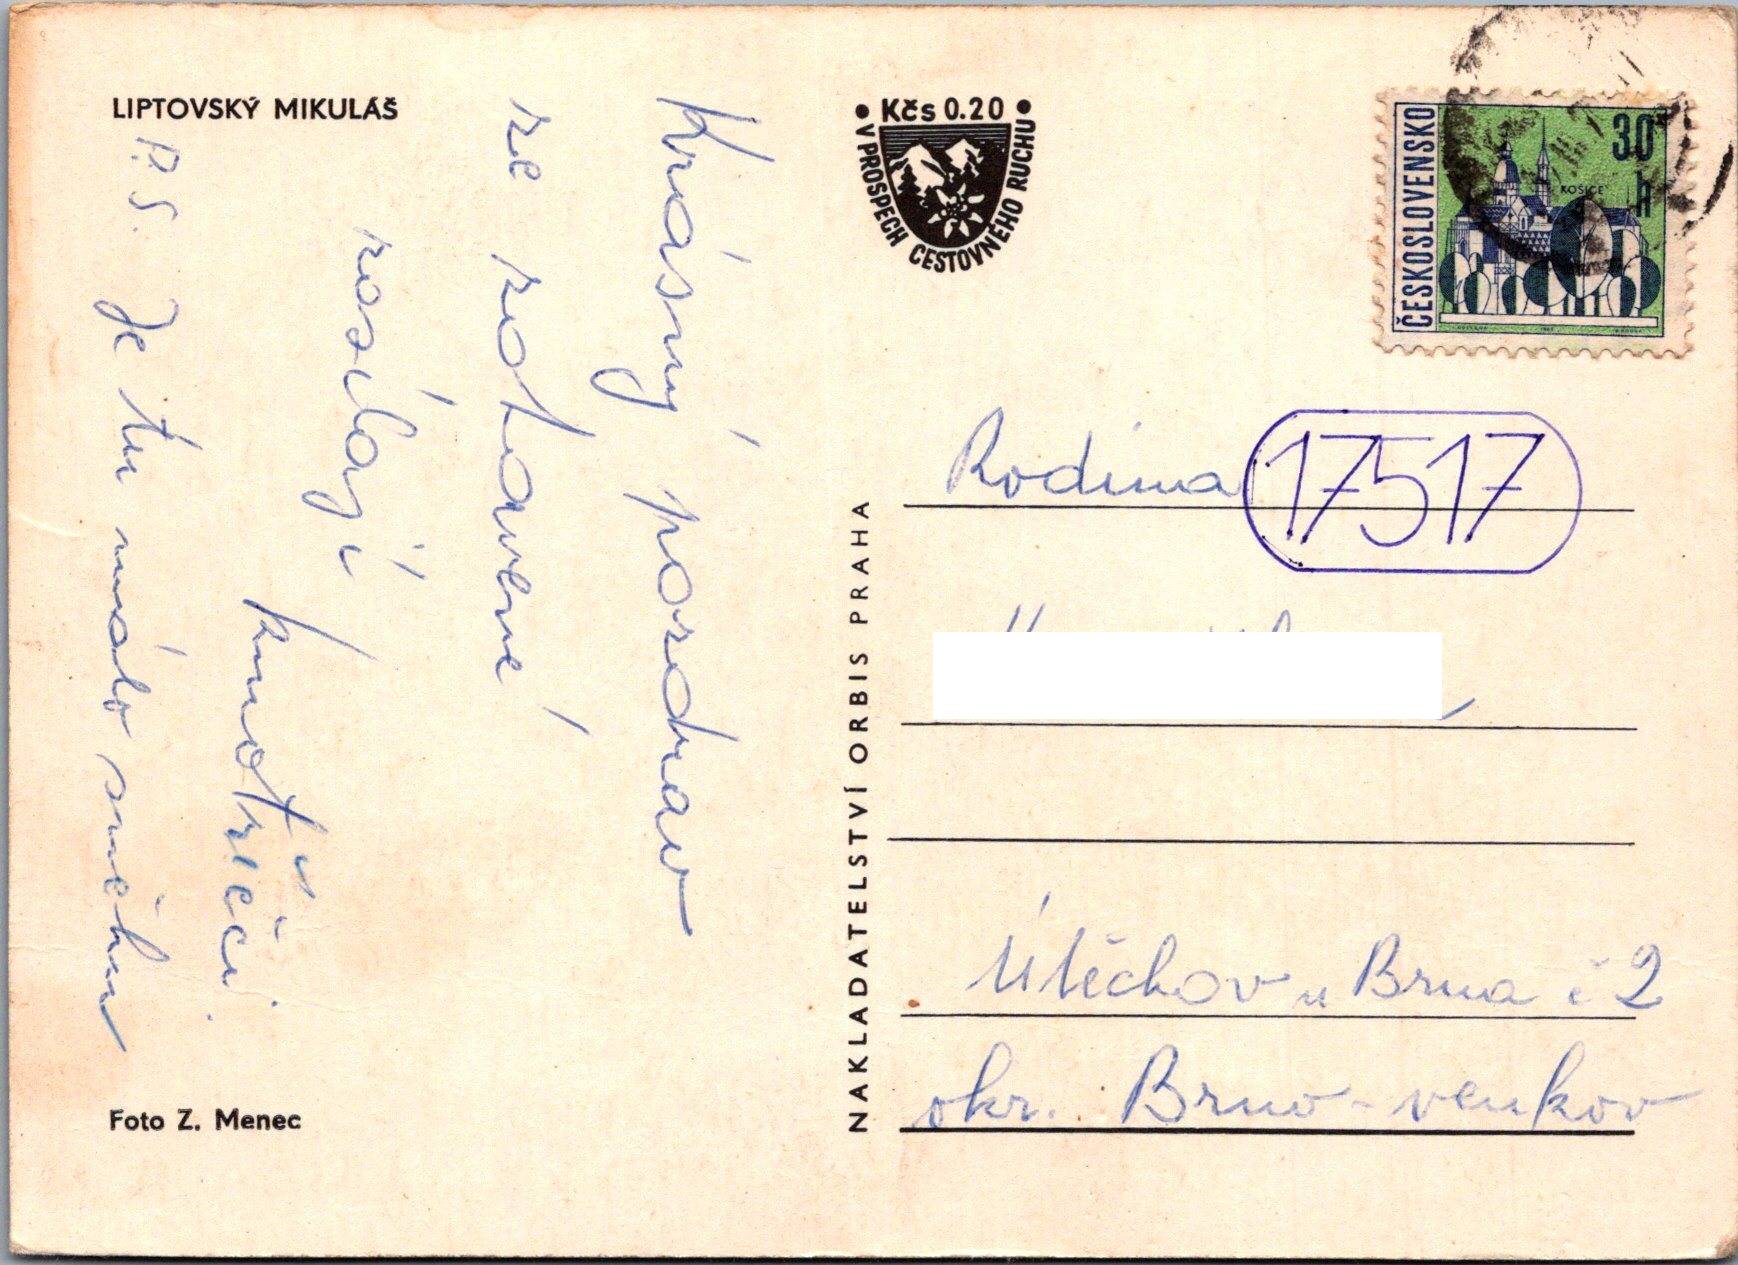 LIPTOVSKÝ MIKULÁŠ
Krásný pozdrav
ze zotavené
zasílají
kmotřěči.
P.S. Je tu málo sněhu
Foto Z. Menec
NAKLADATELSTVÍ ORBIS PRAHA
• Kčs 0.20 •
V PROSPĚCH CESTOVNÉHO RUCHU
ČESKOSLOVENSKO
30 h
KOŠICE
Rodina
17517
Útěchov u Brna č 2
okr. Brno-venkov